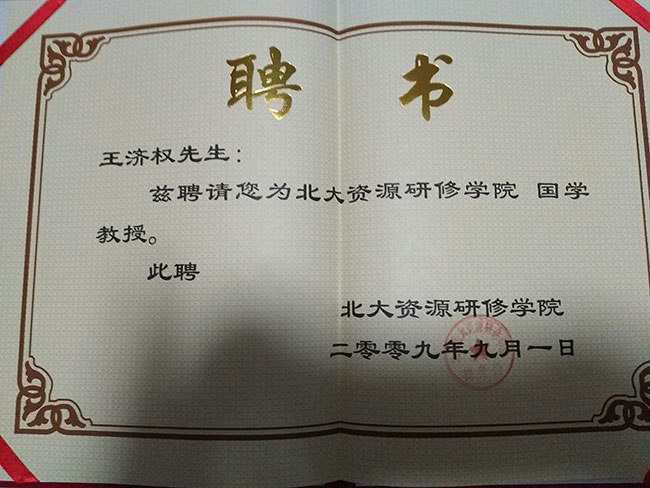 聘书
王济权先生：
兹聘请您为北大资源研修学院 国学
教授。
此聘
北大资源研修学院
二零零九年九月一日